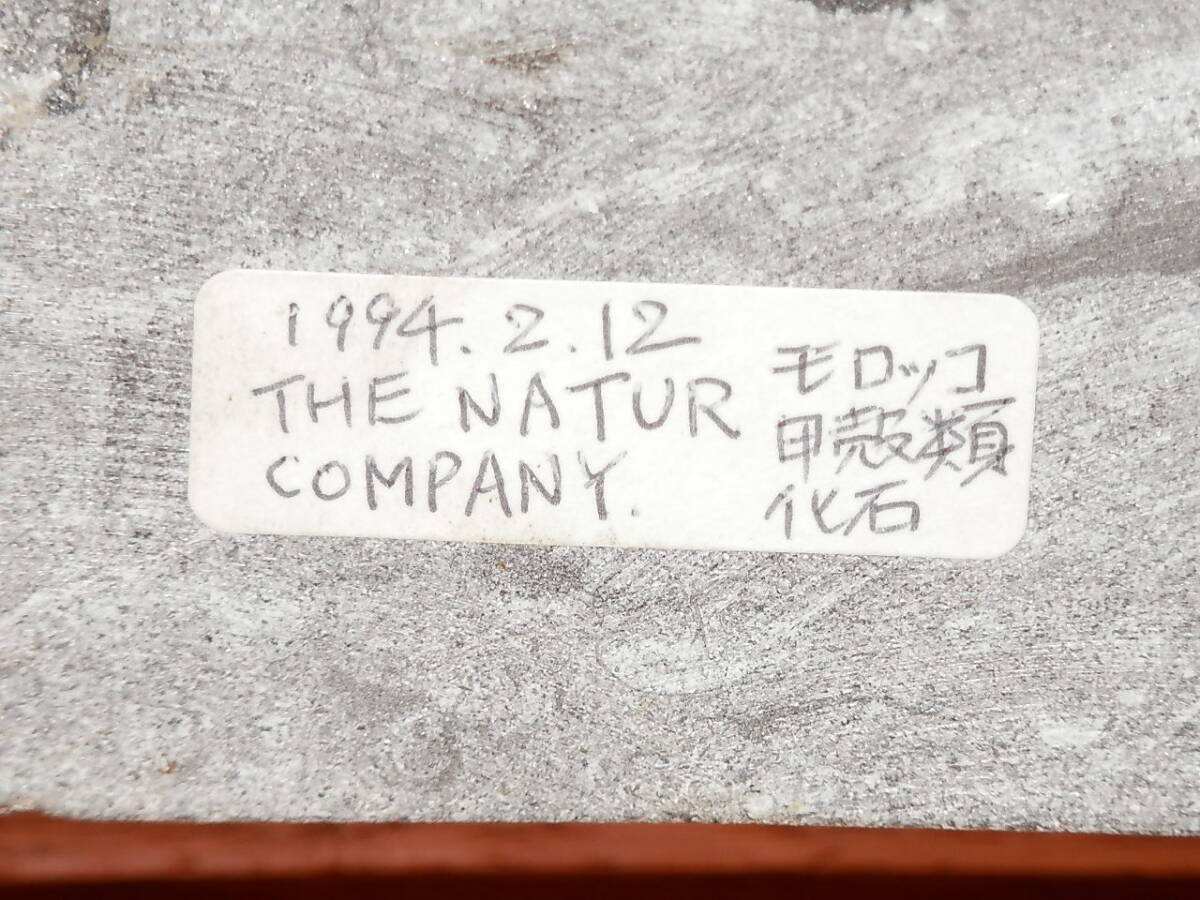 1994.2.12
THE NATUR
COMPANY.
モロッコ
甲殻類
化石